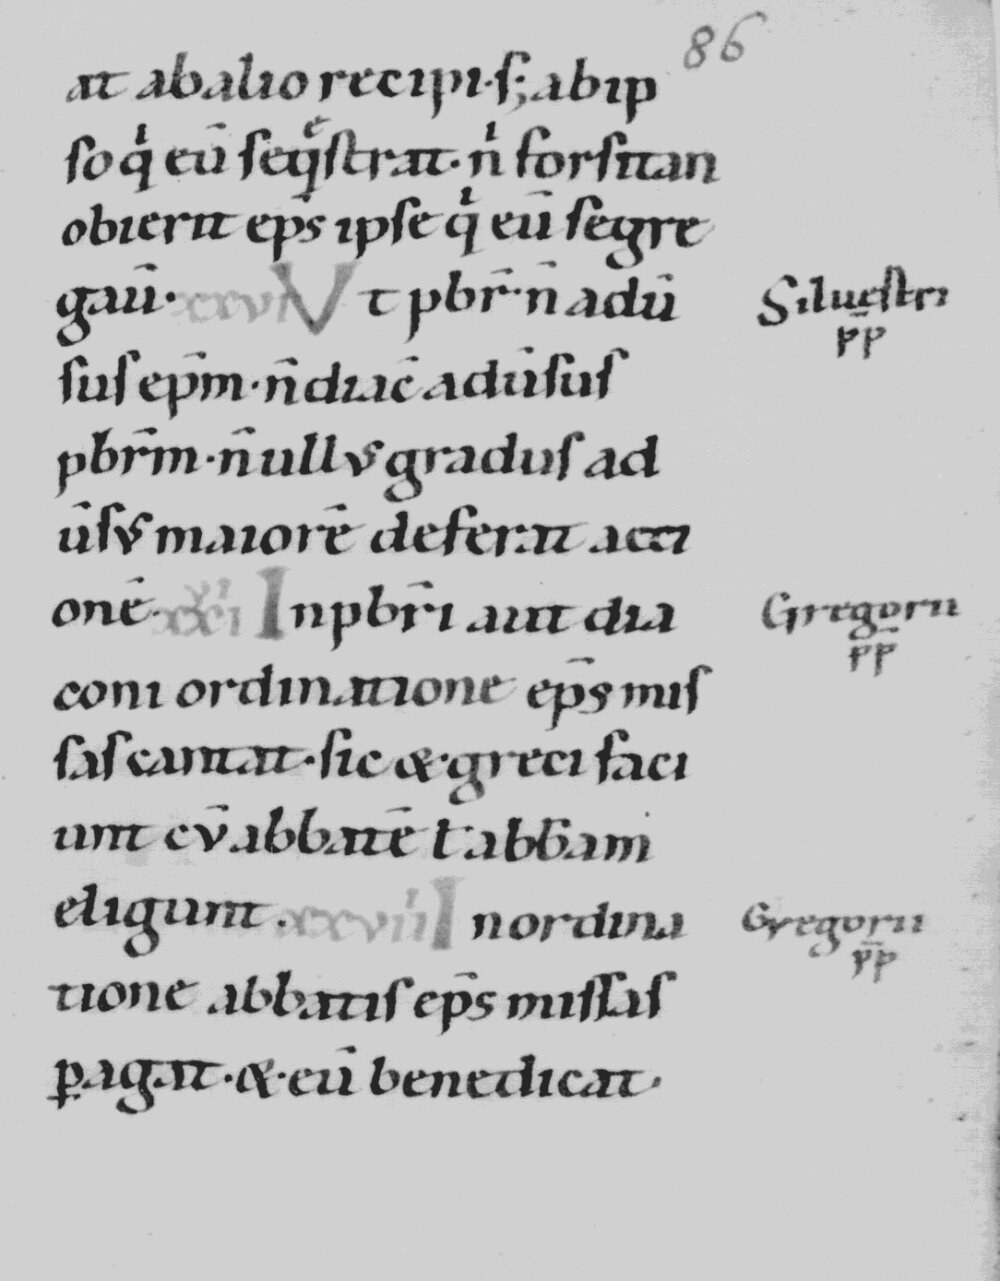 86
at ab alio recipi · s; ab ip
so qͥ eū seqͤstrat · n̍ forsitan
obierit ep̄s ipse qͥ eū segre
gau̅ · xxvi Vt pbr̄ · n̄ adu̅
sus ep̄m · n̄ diac̄ adu̅sus
pbr̄m · n̄ ullus gradus ad
u̅sus maiorē deferat acci
onē · In pbr̄i aut dia
coni ordinatione ep̄s mis
sas cantat · sic & · greci faci
unt cū abbatē ł abb̄am
eligunt · xxviii In ordina
tione abbatis ep̄s missas
ꝑagat · & · eū benedicat ·
Siluestri
p̄p
Gregorii
p̄p
Gregorii
p̄p